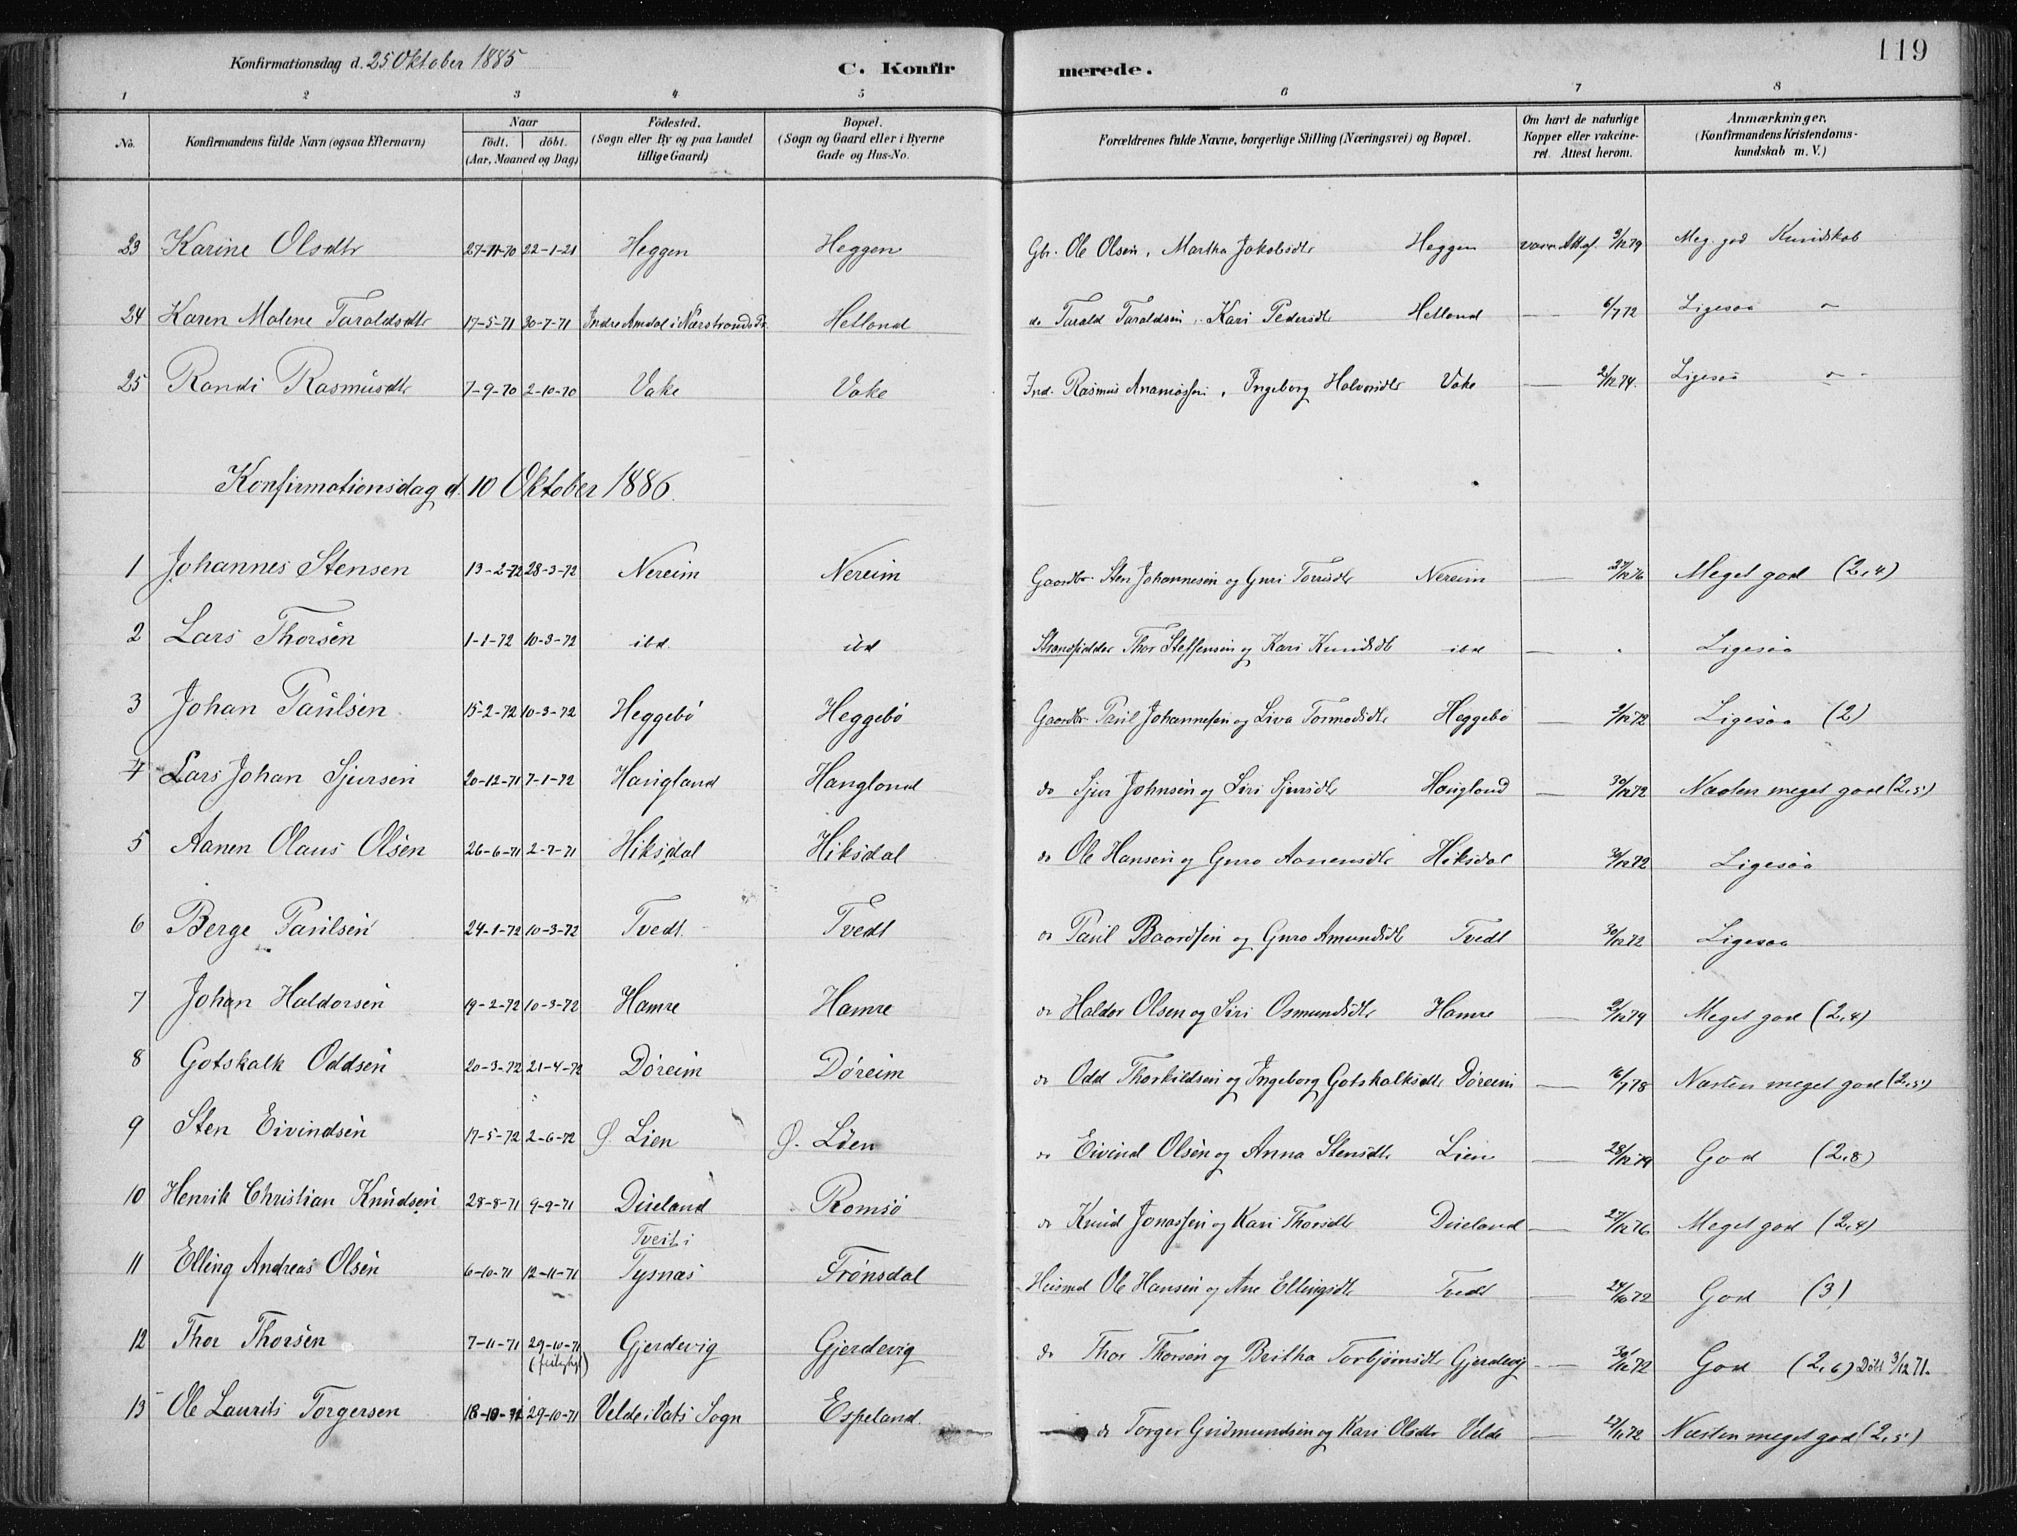 Konfirmationsdag d. 25 Oktober 1885
C. Konfirmerede.
119
1 2 3 4 5 6 7 8
No. Konfirmandens fulde Navn (ogsaa Efternavn) Naar födt. döbt. (Aar, Maaned og Dag) Födested. (Sogn eller By og paa Landet tillige Gaard) Bopæl. (Sogn og Gaard eller i Byerne Gade og Hus-No. Forældrenes fulde Navne, borgerlige Stilling (Næringsvei) og Bopæl. Om havt de naturlige Kopper eller vakcineret. Attest herom. Anmærkninger. (Konfirmandens Kristendomskundskab m. V.)
23 Karine Olsdtr 27-11-70 22-1-21 Heggen Heggen Gbr. Ole Olsen, Martha Jakobsdtr Heggen 3/12 79 Meg. god Kundskab
24 Karen Malene Taraldsdtr 17-5-71 30-7-71 Indre Amdal i Nærstrands Hetland do Tarald Taraldsen, Kari Pedersdtr Hetland — 6/7 72 Ligesaa —
25 Randi Rasmusdtr 7-9-70 2-10-70 Vake Vake Ind. Rasmus, Ingeborg Halvorsdtr Vake — 2/12 74. Ligesaa —
Konfirmationsdag d. 10 Oktober 1886.
1 Johannes Stensen 13-2-72 28-3-72 Nereim Nereim Gaardbr Sten Johannesen og Guri Nereim — 27/12 76 Meget god (2,4)
2 Lars Thorsen 1-1-72 10-3-72 ibd ibd Strandsidder Thor Steffensen og Kari Knudsdtr ibd — Ligesaa
3 Johan Paulsen 15-2-72 10-3-72 Heggebö Heggebö Gaardbr Paul Johannesen og Liva Tormodsdtr Heggebö — 2/12 72 Ligesaa (2)
4 Lars Johan Sjursen 20-12-71 7-1-72 Haugland Haugland do Sjur Johnsen og Siri Sjursdtr Haugland — 30/12 72 Næsten meget god (2,5)
5 Aanen Olaus Olsen 26-6-71 2-7-71 Hiksdal Hiksdal do Ole Hansen og Guro Aanensdtr Hiksdal 30/12 72 Ligesaa
6 Berge Paulsen 24-1-72 10-3-72 Tvedt Tvedt do Paul Baardsen og Guro Amundsdtr Tvedt 30/12 72 Ligesaa
7 Johan Haldorsen 19-2-72 10-3-72 Hamre Hamre do Haldor Olsen og Siri Osmundsdtr Hamre — 2/12 79 Meget god (2,4)
8 Gotskalk Oddsen 20-3-72 21-4-72 Döreim Döreim do Odd Thorkildsen og Ingeborg Gotskalksdtr Döreim — 16/7 78 Næsten meget god (2,5)
9 Sten Eivindsen 17-5-72 2-6-72 Ø. Lien Ø. Lien do Eivind Olsen og Anna Stensdtr Lien — 28/12 79 God (2,8)
10 Henrik Christian Knudsen 28-8-71 9-9-71 Dueland Romsö do Knud Jonassen og Kari Thorsdtr Dueland — 27/12 76 Meget god (2,4)
11 Elling Andreas Olsen 6-10-71 12-11-71 Tveit i Tysnæs Frönsdal Husmd Ole Hansen og Ane Ellingsdtr Tvedt — 24/10 72 God (3)
12 Thor Thorsen 7-11-71 29-10-71 Gjerdevig Gjerdevig do Thor Thorsen og Britha Torbjörnsdtr Gjerdevig — 30/12 72 God (2,6) Döbt 3/12 71.
13 Ole Laurits Torgersen 18-10-71 29-10-71 Velde i Vats Sogn Espeland do Torger Gudmundsen og Kari Olsdtr Velde — Næsten meget god (2,5)